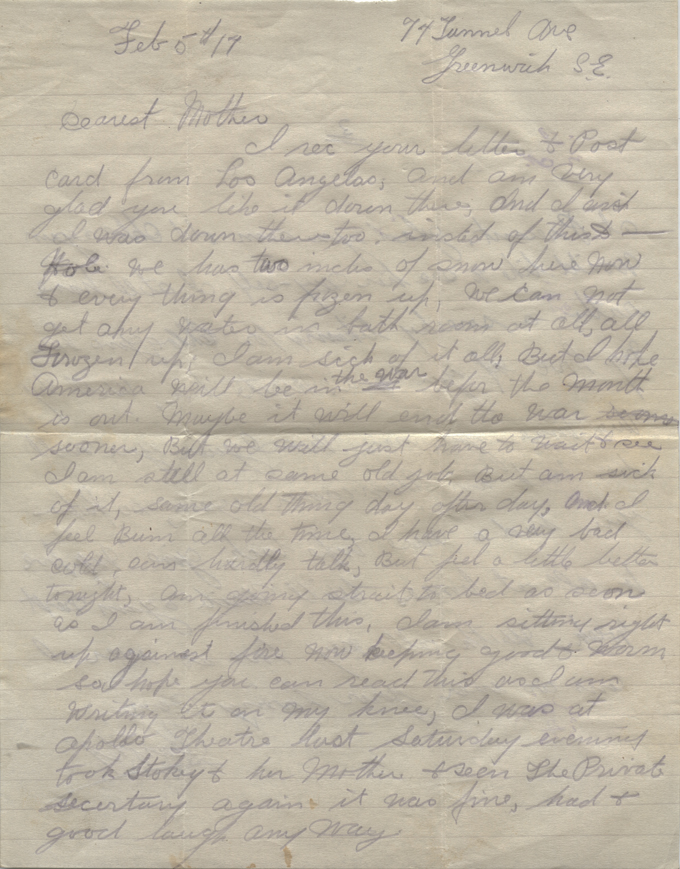 Feb 5th/17
77 Tunnel Ave
Greenwich S.E.
Dearest Mother
I rec your letter & Post
card from Los Angelas, and am very
glad you like it down there, And I wish
I was down there too. insted of this
Hole we has two inchs of snow here now
& every thing is frozen up, we can not
get any water in bath room at all, all
Frozen up, I am sick of it all, But I hope
America will be in the war befor the Month
is out. Maybe it will end the war
sooner, But we will just have to wait & see
I am still at same old job But am sick
of it, same old thing day after day, And I
feel Bum all the time, I have a very bad
cold, can hardly talk, But feel a little better
tonight, am going strait to bed as soon
as I am finished this, I am sitting right
up against fire now keeping good & warm
so hope you can read this as I am
writing it on my knee, I was at
apollo Theatre last Saturday evening
took Stokey & her Mother & seen The Private
secertary again it was fine, had a
good laugh any way